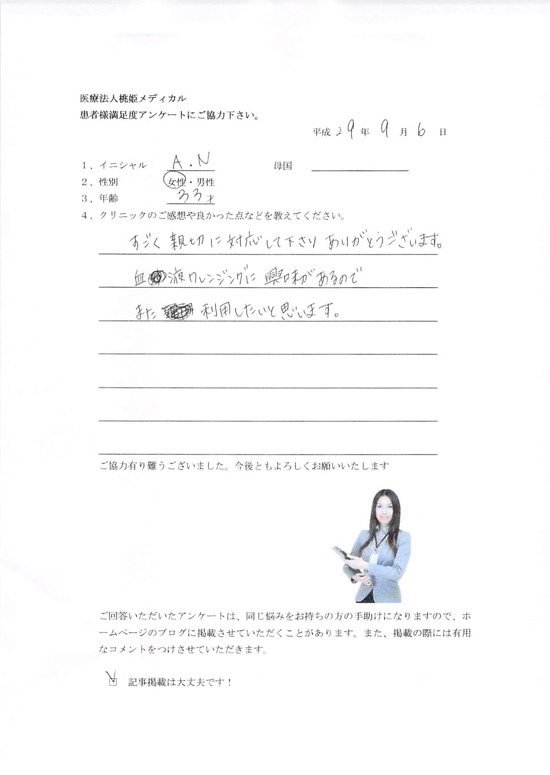 医療法人桃姫メディカル
患者様満足度アンケートにご協力下さい。
平成 29 年 9 月 6 日
1、イニシャル A.N 母国
2、性別 女性・男性
3、年齢 33才
4、クリニックのご感想や良かった点などを教えてください。
すごく親切に対応して下さりありがとうございます。
血液クレンジングに興味があるので
また利用したいと思います。
ご協力有り難うございました。今後ともよろしくお願いいたします
ご回答いただいたアンケートは、同じ悩みをお持ちの方の手助けになりますので、ホ
ームページのブログに掲載させていただくことがあります。また、掲載の際には有用
なコメントをつけさせていただきます。
記事掲載は大丈夫です！